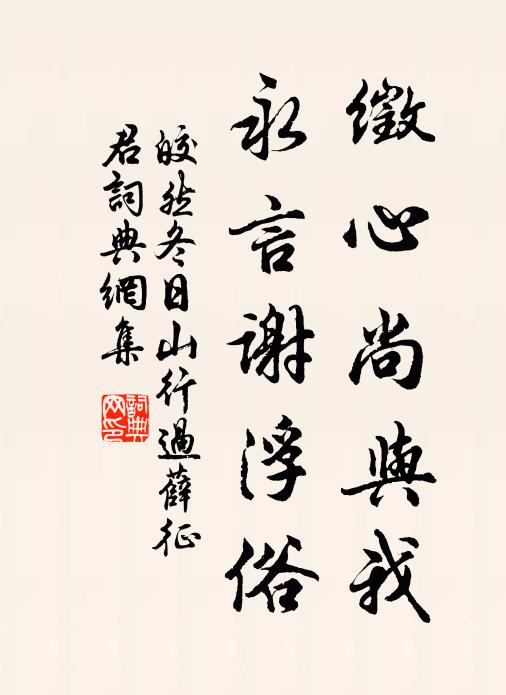 徵心尚與我
永言謝浮俗
皎然冬日山行過薛征
君詞典網集
詞典
网印